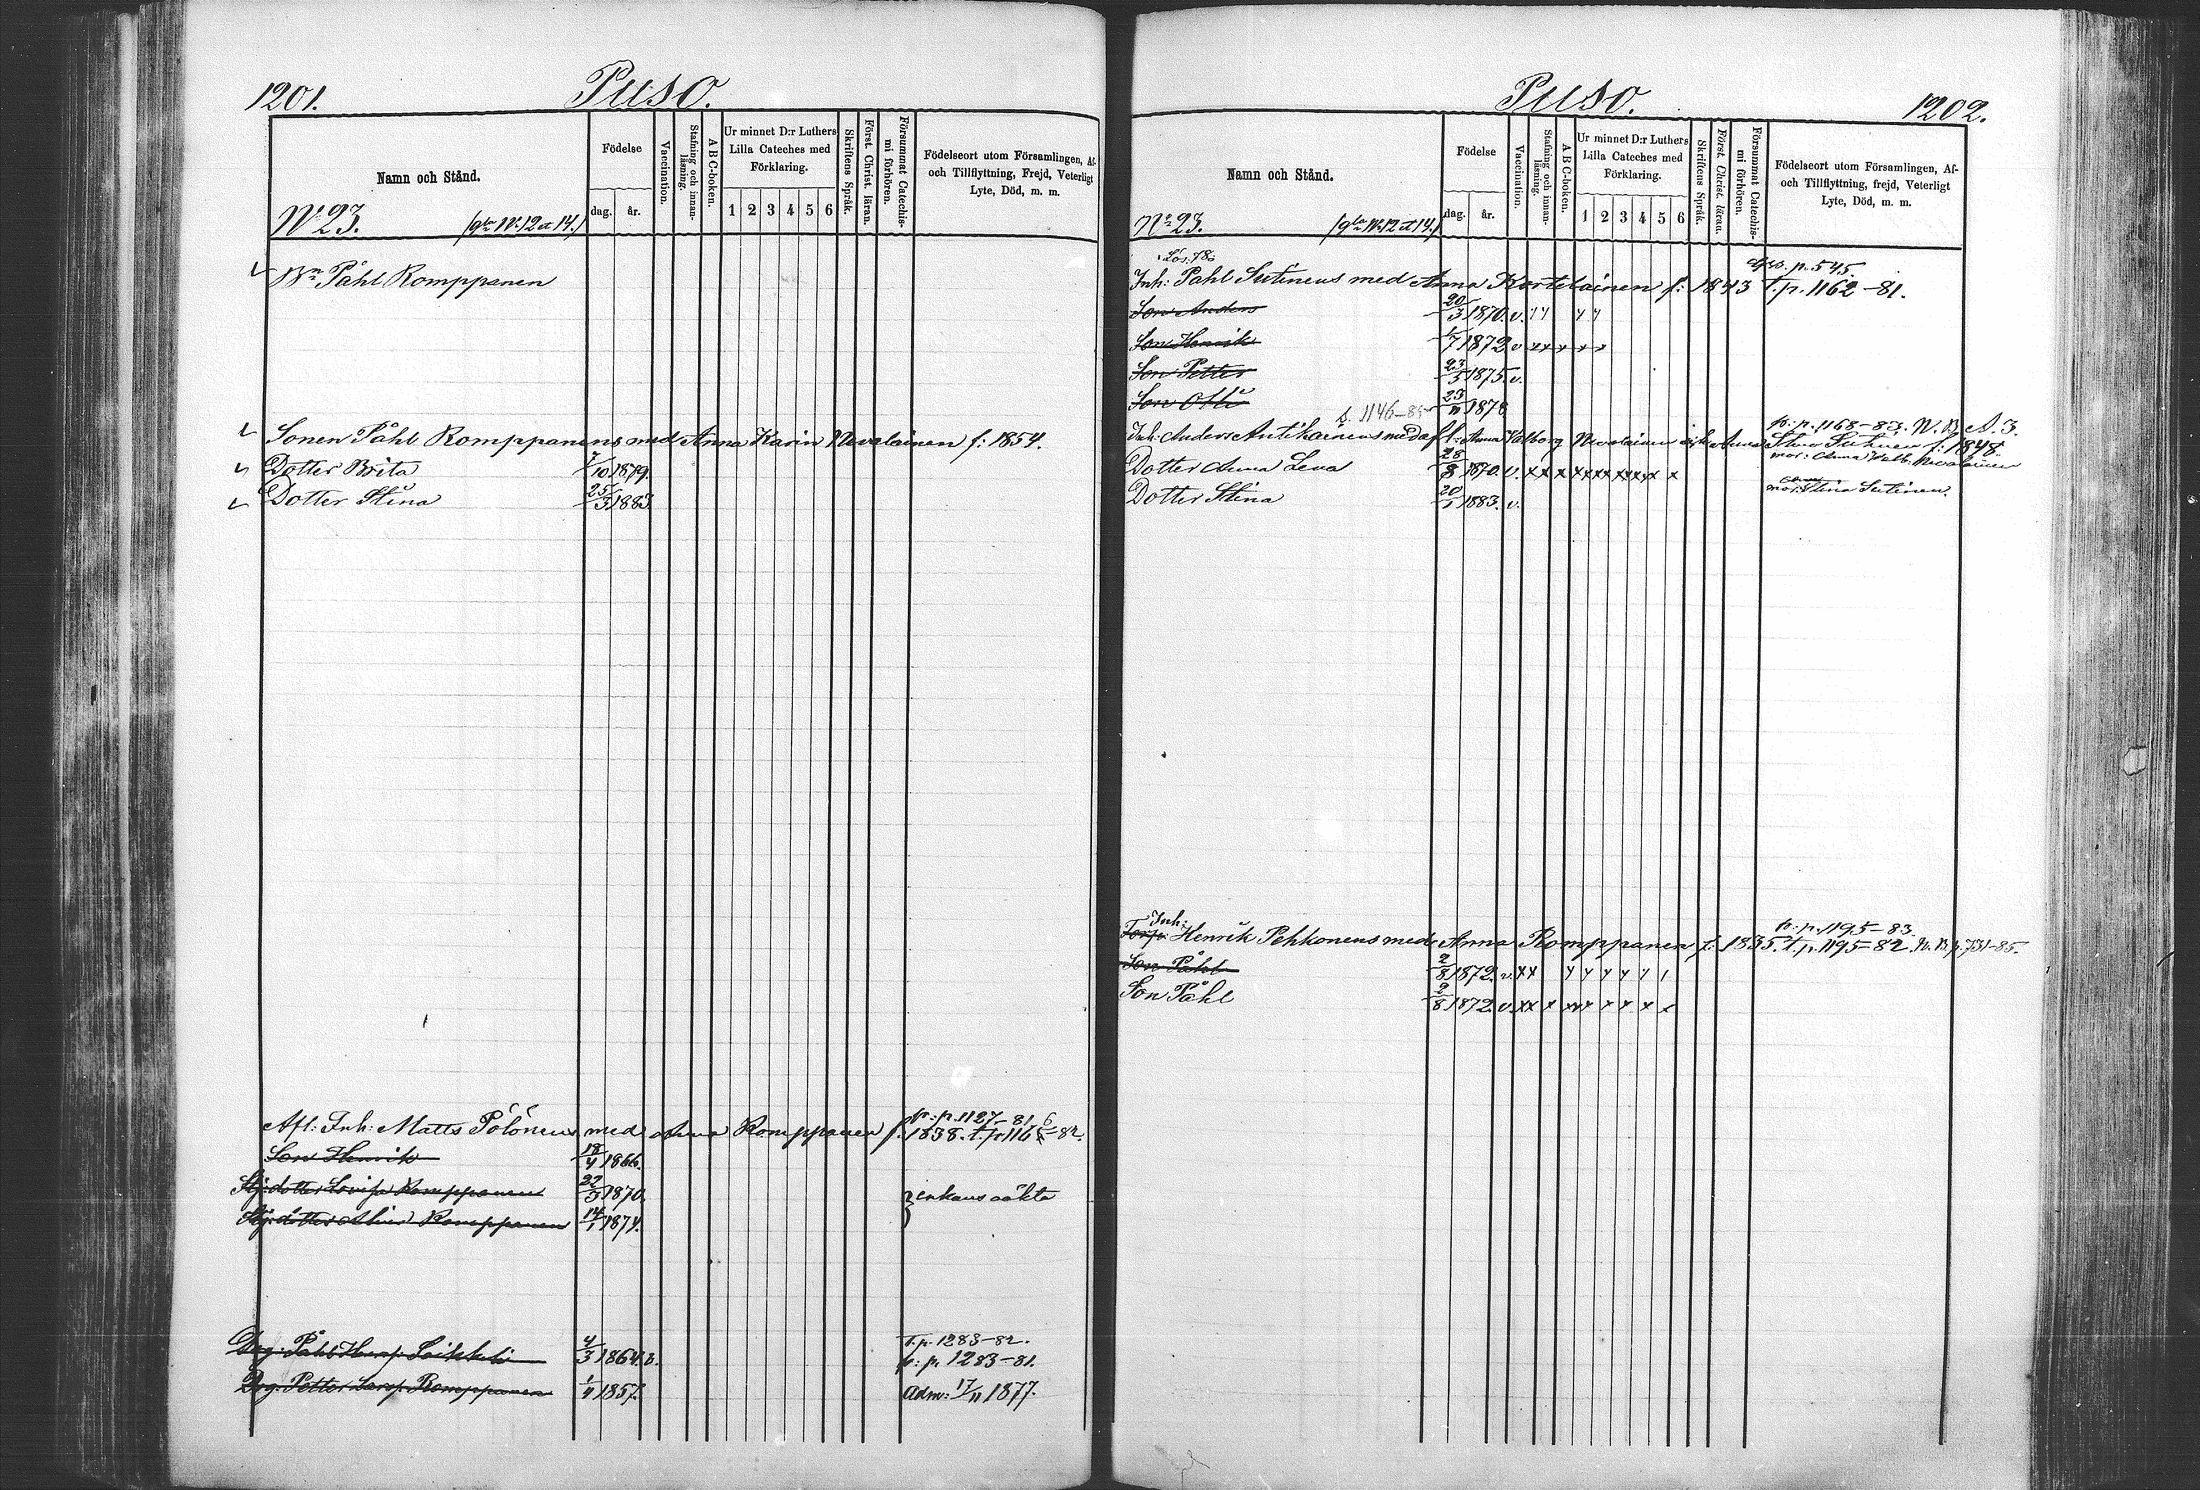 1201.
Puso.
Namn och Stånd.
Födelse
dag. år.
Vaccination.
Stafning och innanläsning.
ABC-boken.
Ur minnet D:r Luthers Lilla Cateches med Förklaring.
1 2 3 4 5 6
Skriftens Språk.
Först. Christ. läran.
Försummat Catechismi förhören.
Födelseort utom Församlingen, Af- och Tillflyttning, Frejd, Veterligt Lyte, Död, m. m.
No 23. (gla No 12 et 14.)
Bn Påhl Romppanen
Sonen Påhl Romppanens med Anna Karin Nevalainen f: 1854.
Dotter Brita 7/10 1879.
Dotter Stina 25/3 1883.
fr: p. 1127-81.
Afl: Inh: Matts Pölönens med Anna Romppanen f. 1838. t. p. 116 -82.
Son Henrik 18/4 1866.
Stj: dotter Lovisa Romppanen 22/3 1870.
enkans oäkta
Stj: dotter Romppanen 14/1 1874.
T. p. 1283-82.
Drg: Påhl Loikkali 4/3 1864. v. fr: p. 1283-81.
Drg: Petter Larsp: Romppanen 1/4 1857. Adm: 17/11 1877.
Puso.
1202.
Namn och Stånd.
Födelse
dag. år.
Vaccination.
Stafning och innanläsning.
ABC-boken.
Ur minnet D:r Luthers Lilla Cateches med Förklaring.
1 2 3 4 5 6
Skriftens Språk.
Först. Christ. läran.
Försummat Catechismi förhören.
Födelseort utom Församlingen, Af- och Tillflyttning, frejd, Veterligt Lyte, Död, m. m.
No 23. (gla No 12 et 14.)
p. 545.
Inh: Påhl Sutinens med Anna Kortelainen f: 1843 T. p. 1162-81.
Son Anders 20/3 1870. v.
Son Henrik 1/7 1872 v
Son Petter 23/5 1875. v.
Son Otti 23/11 1878
p. 1146-85
fr. p. 1168-83. N.B. A. 3.
Inh: Anders Antikainens med afl: Anna Valborg Nevalainen och Anna Stina Sutinen f: 1848.
Dotter Anna Lena 28/8 1870. v. mor: Anna Valb. Nevalainen
Dotter Stina 20/1 1883. v. mor: Stina Sutinen.
Inh:
fr. p. 1195-83.
Torp: Henrik Pehkonens med Anna Romppanen f: 1835. t. p. 1195-82. N.B. p. 731-85.
Son Påhl 2/8 1872. v.
Son Påhl 2/8 1872. v.